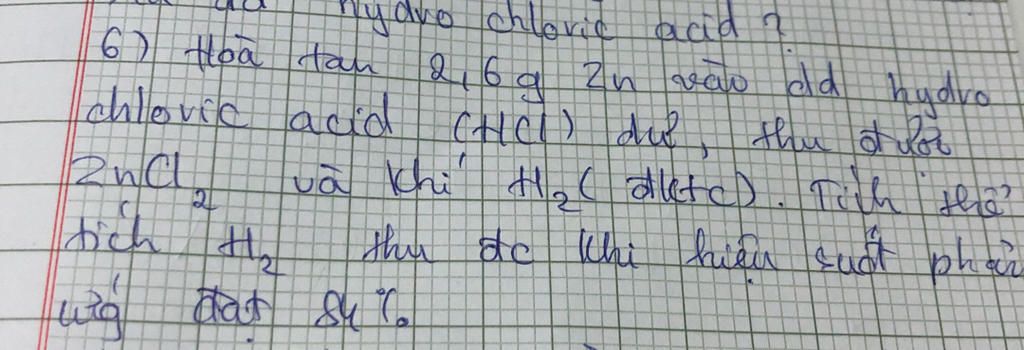 hydro chloric acid ?
6) Hoà tan 2,6g Zn vào dd hydro
chloric acid (HCl) dư, thu được
ZnCl2 và khí H2 (đktc). Tính thể
tích H2 thu đc khi hiệu suất phản
ứng đạt 84%.